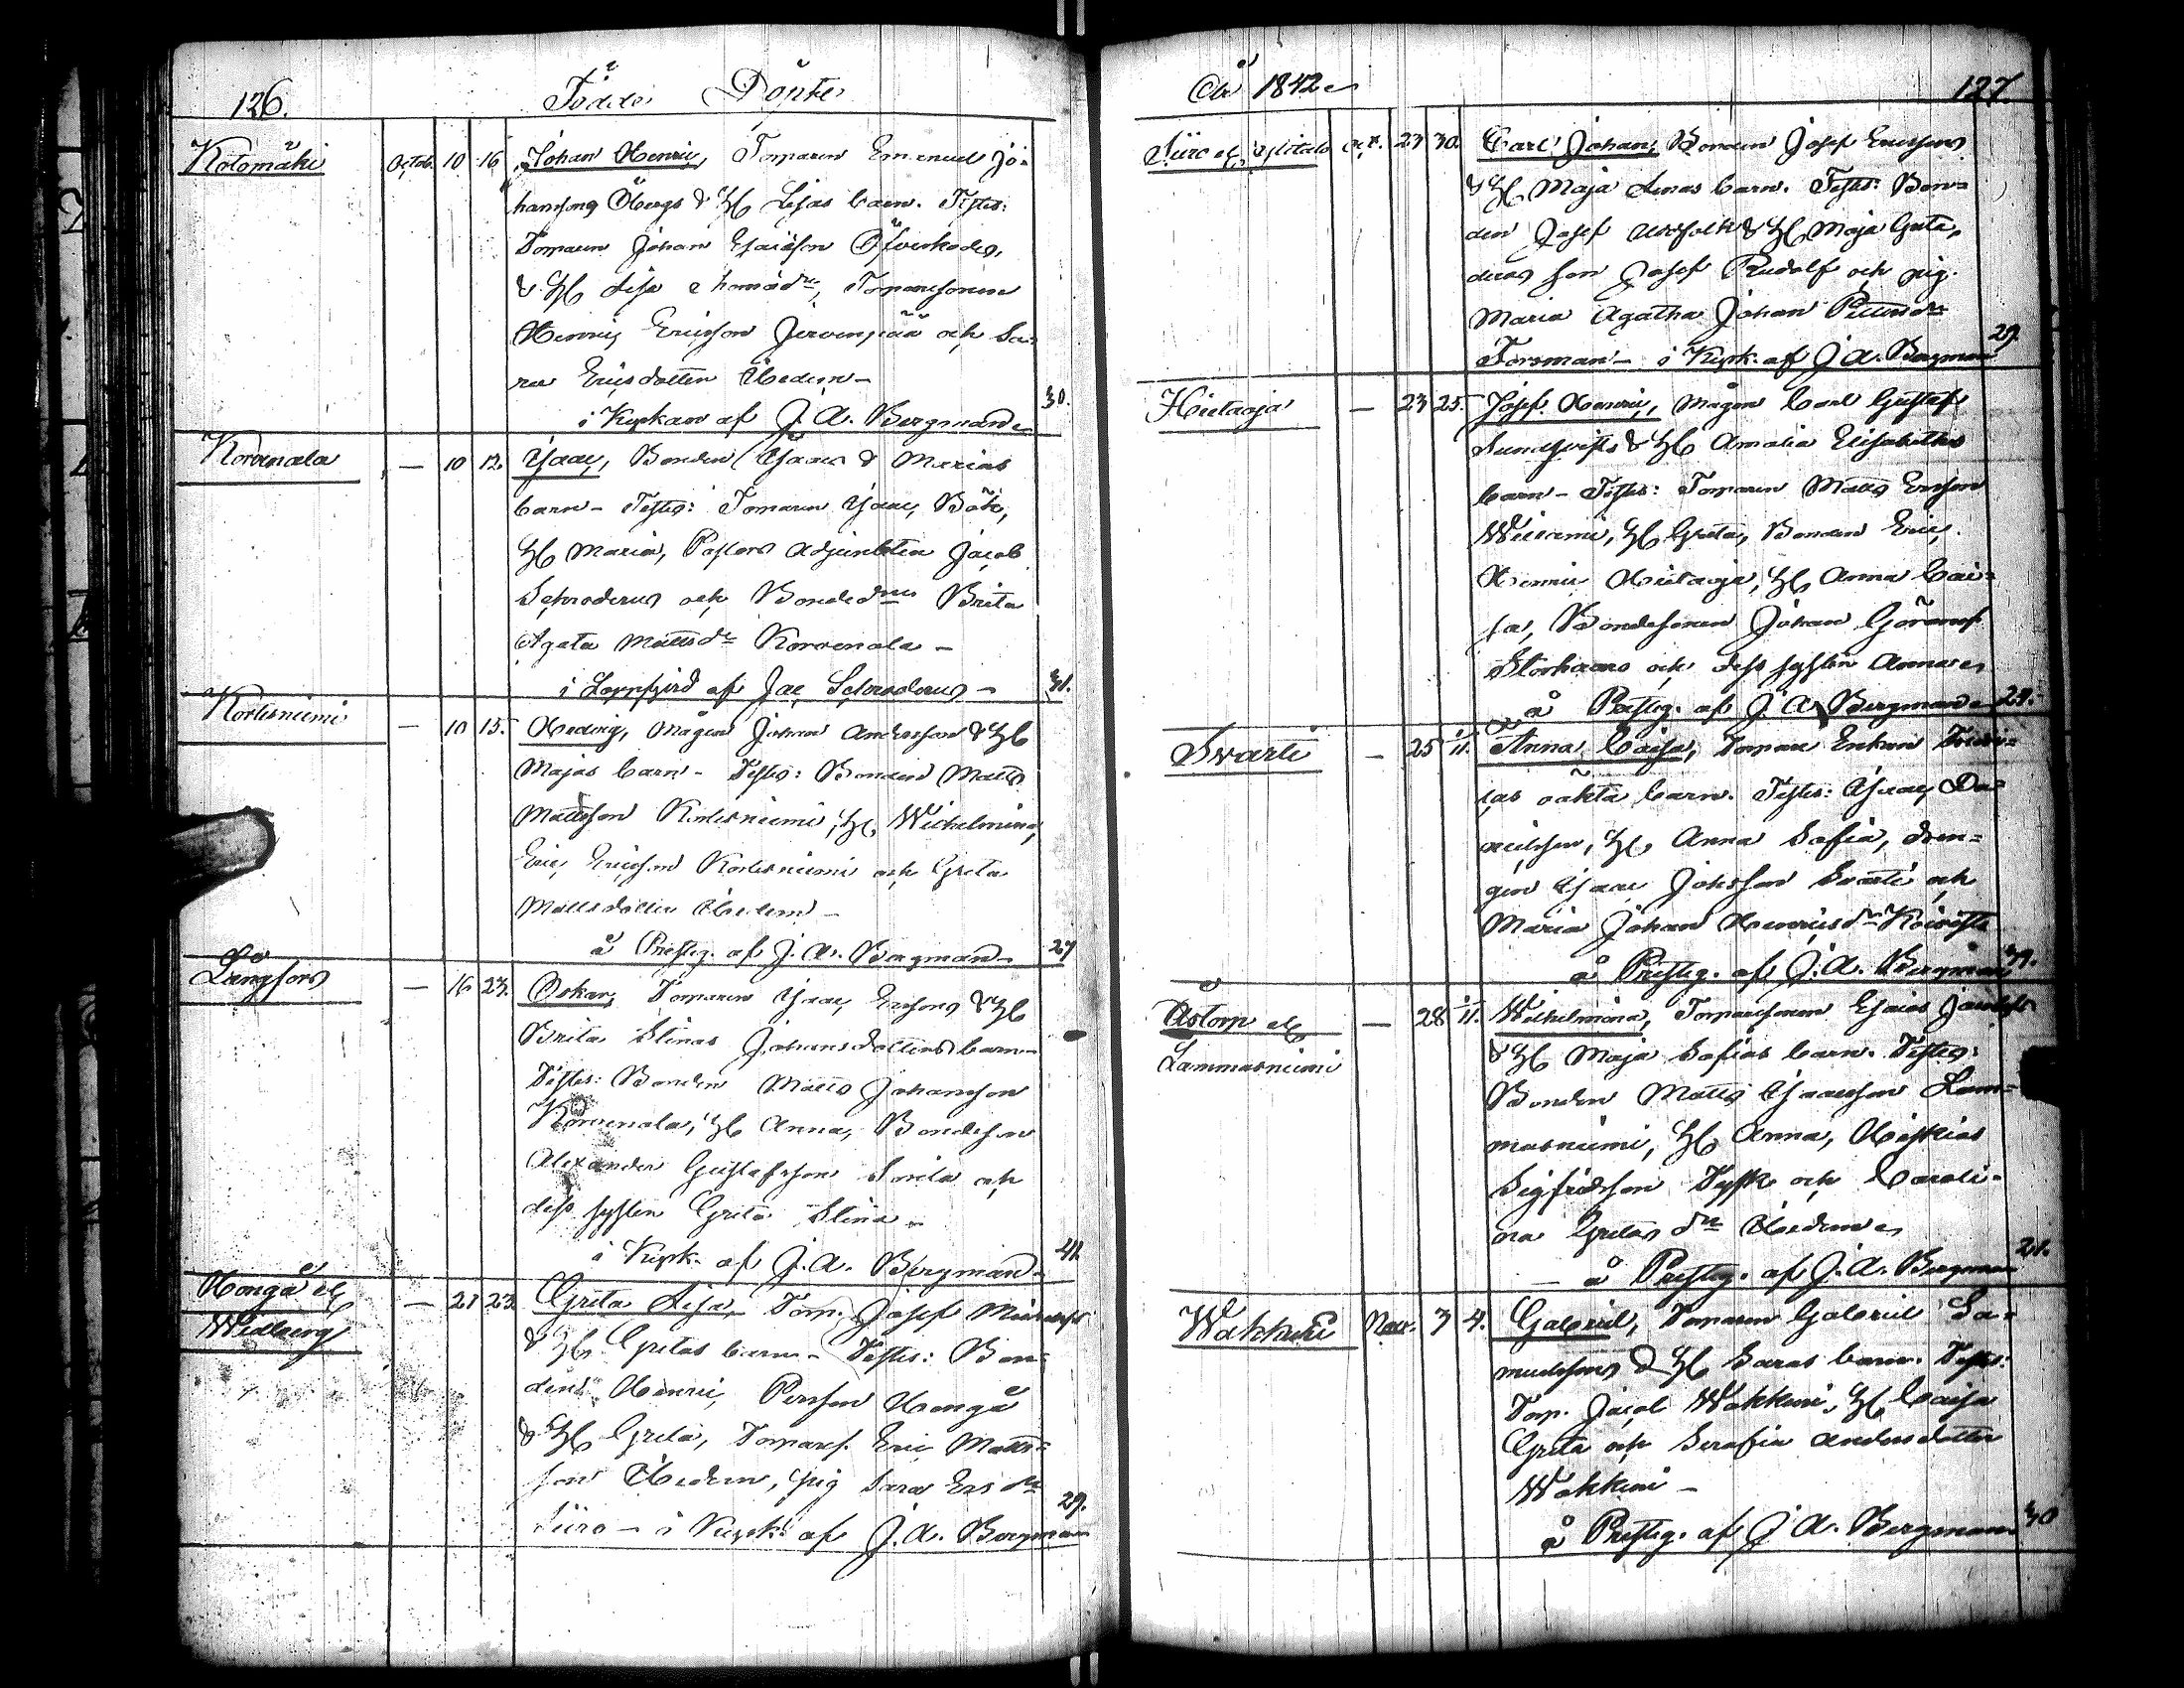 126. Födde Döpte
Kotomäki Octob. 10 16 Johan Henric, Torparen Emanuel Jo-
hanssons Öbergs & H Lisas barn. Testes:
Torparen Johan Esaiasson
& H Lisa Thomasdr, Torparesonen
Henric Ericsson Jervenpää och Sa-
ra Ericsdotter Ibedem – 30.
i Kyrkan af J. A. Bergman
Korvenala — 10 12. Isaac, Bonden Isaacs & Marias
barn – Testes: Torparen Isaac Böhl,
H Maria, Pastors Adjunkten Jacob
Schroderus och Bondedrn Brita
Agata Mattsdr Korvenala –
i Lappfjerd af Jac Schroderus – 31.
Kortesniemi — 10 15. Hedvig, Mågen Johan Andersson & H
Majas barn – Testes: Bonden Matts
Mattsson Kortesniemi, H Wilhelmina,
Eric Ericsson Kortesniemi och Greta
Mattsdotter Ibedem –
å Prestg. af J. A. Bergman – 27
Långfors — 16 23. Oskar, Torparen Isaac Erssons & H
Brita Stinas Johansdotters barn
Testes: Bonden Matts Johansson
Korvenala, H Anna, Bondeson
Alexander Gustafsson och
dess systen Greta Stina –
i Kyrk. af J. A. Bergman – 41.
Hongå el. — 21 23 Greta Lisa, Torp. Josef
Widberg & H Gretas barn – Testes: Bon-
den Henric Persson Hongå
& H Greta, Torpares. Eric Matts-
son Ibedem, pig Sara Ersdr
Süro – i Kyrk. af J. A. Bergman 29.
År 1842 127.
Süro el. Oct. 23 30. Carl Johan, Bonden Josef Ericssons
& H Maja Lenas barn. Testes: Bon-
den Josef & H Maja Greta,
deras son Josef Rudolf och pig.
Maria Agatha Johan
Forsman – i Kyrk. af J. A. Bergman 29.
Hietaoja — 23 25. Josef Henric, Mågen Carl Gustaf
Sundqvists & H Amalia Elisabeths
barn – Testes: Torparen Matts Ersson
H Greta, Bonden Eric
Henric Hietaoja, H Anna Cai-
sa, Bondesonen Johan
och dess systen Anna
å Prestg. af J. A. Bergman 29.
Svarti — 25 11. Anna Caisa, Torpare Enkan
oäkta barn. Testes: Isaac Da-
nielsson, H Anna Sofia, dren-
gen Isaac Johsson Svarti och
Maria Johan Henricsdr Koivisto
å Prestg. af J. A. Bergman 39.
Åstorp el. — 28 11. Wilhelmina, Torparesonen Esaias
Lammasniemi & H Maja Sofias barn. Testes:
Bonden Matts Isaacsson Lam-
masniemi, H Anna,
Sigfridsson Tysk och Caroli-
na Gretas dr Ibedem
— å Prestg. af J. A. Bergman 21.
Wakkuri Nov. 3 4. Gabriel, Torparen Gabriel Sa-
muelssons & H Saras barn. Testes:
Torp. Jacob Wakkuri, H Caisa
Greta och Serafia Andersdotter
Wakkuri –
å Prestg. af J. A. Bergman 30